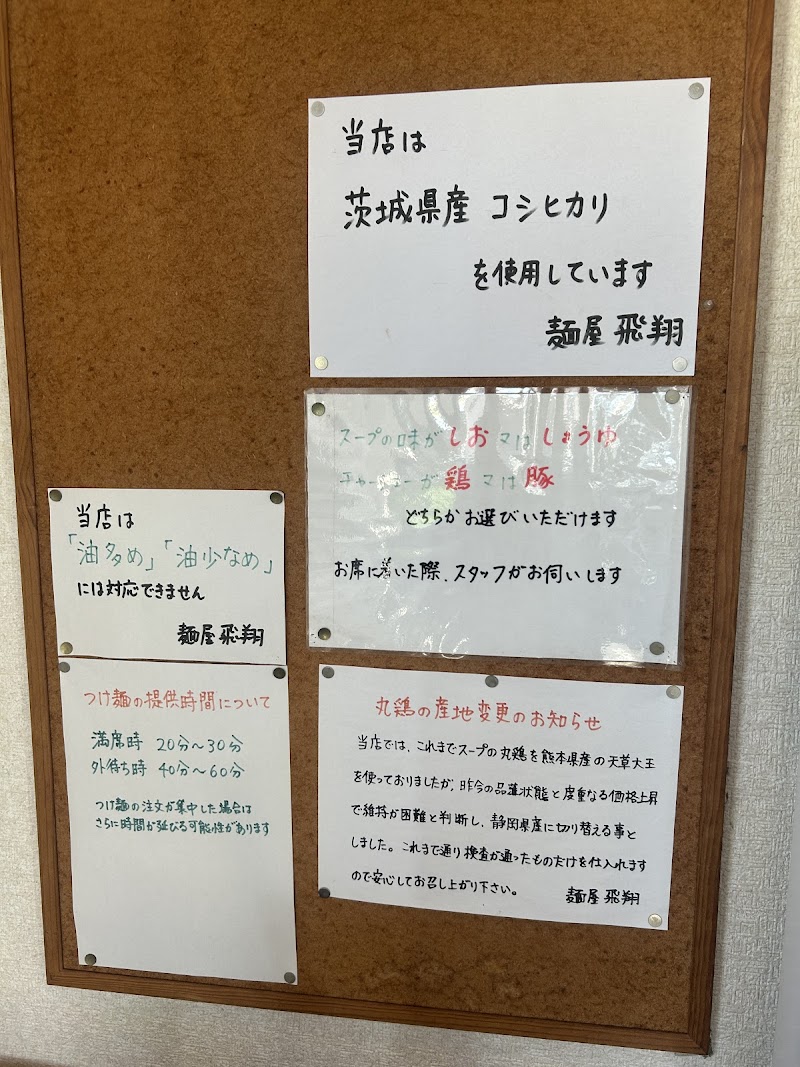 当店は
茨城県産 コシヒカリ
を使用しています
麺屋 飛翔
スープの味が しお又は しょうゆ
チャーシューが 鶏 又は 豚
どちらかお選びいただけます
お席に着いた際、スタッフがお伺いします
当店は
「油多め」「油少なめ」
には対応できません
麺屋 飛翔
つけ麺の提供時間について
満席時 20分〜30分
外待ち時 40分〜60分
つけ麺の注文が集中した場合は
さらに時間が延びる可能性があります
丸鶏の産地変更のお知らせ
当店では、これまでスープの丸鶏を熊本県産の天草大王
を使っておりましたが、昨今の品薄状態と度重なる価格上昇
で維持が困難と判断し、静岡県産に切り替える事と
しました。これまで通り検査が通ったものだけを仕入れます
ので安心してお召し上がり下さい。 麺屋 飛翔